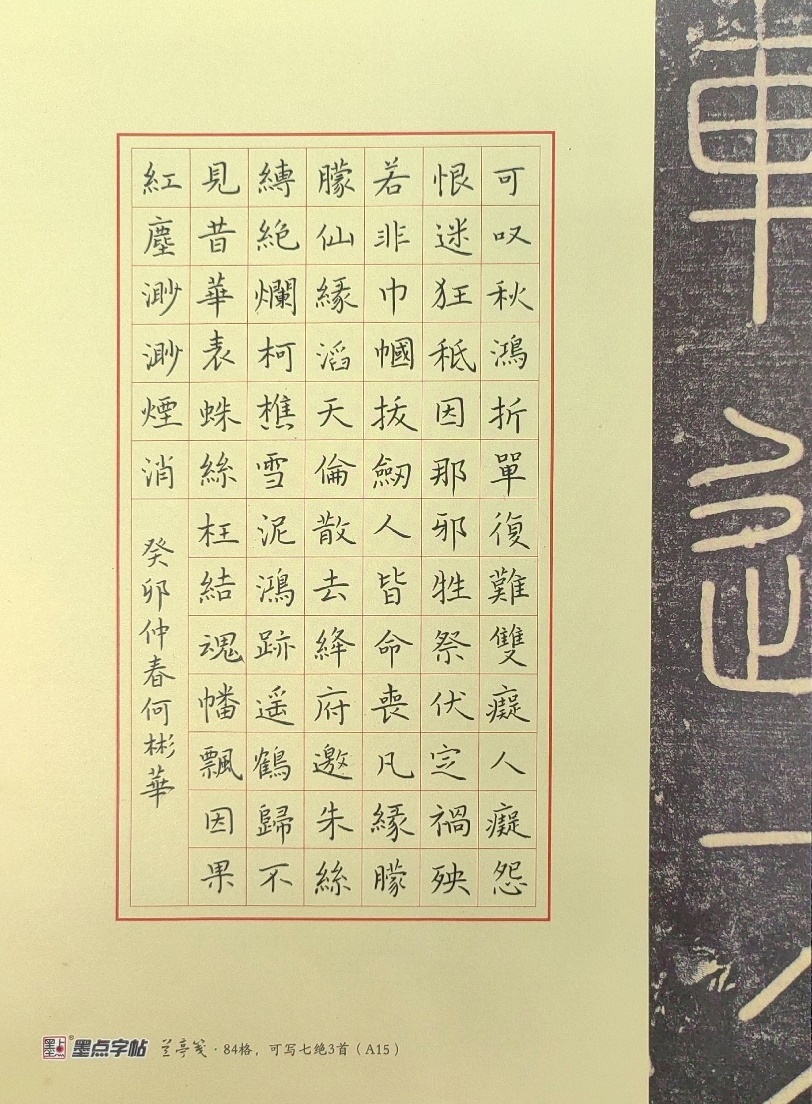 可叹秋鴻折單復難雙癡人癡怨
恨迷狂秪因那邪牲祭伏定禍殃
若非巾幗拔劒人皆命喪凡緣朦
朦仙緣滔天倫散去絳府邀朱絲
縛絕爛柯樵雪泥鴻跡遥鶴歸不
見昔華表蛛絲枉結魂幡飄因果
紅塵渺渺煙消
癸卯仲春何彬華
墨点字帖 兰亭笺·84格，可写七绝3首（A15）